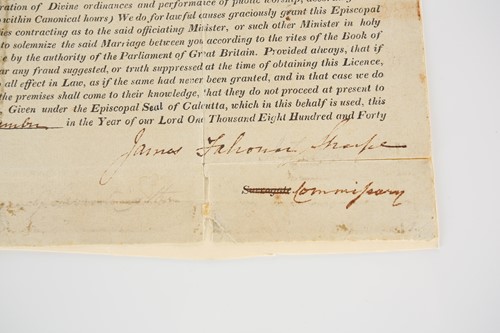 ration of Divine ordinances and performance of public worship, 
within Canonical hours) We do for lawful causes graciously grant this Episcopal
ies contracting as to the said officiating Minister, or such other Minister in holy
to solemnize the said Marriage between you according to the rites of the Book of
e by the authority of the Parliament of Great Britain. Provided always, that if
ear any fraud suggested, or truth suppressed at the time of obtaining this Licence,
all effect in Law, as if the same had never been granted, and in that case we do
the premises shall come to their knowledge, that they do not proceed at present to
Given under the Episcopal Seal of Calcutta, which in this behalf is used, this
in the Year of our Lord One Thousand Eight Hundred and Forty
James Falconer Sharpe
Surrogate Commissary